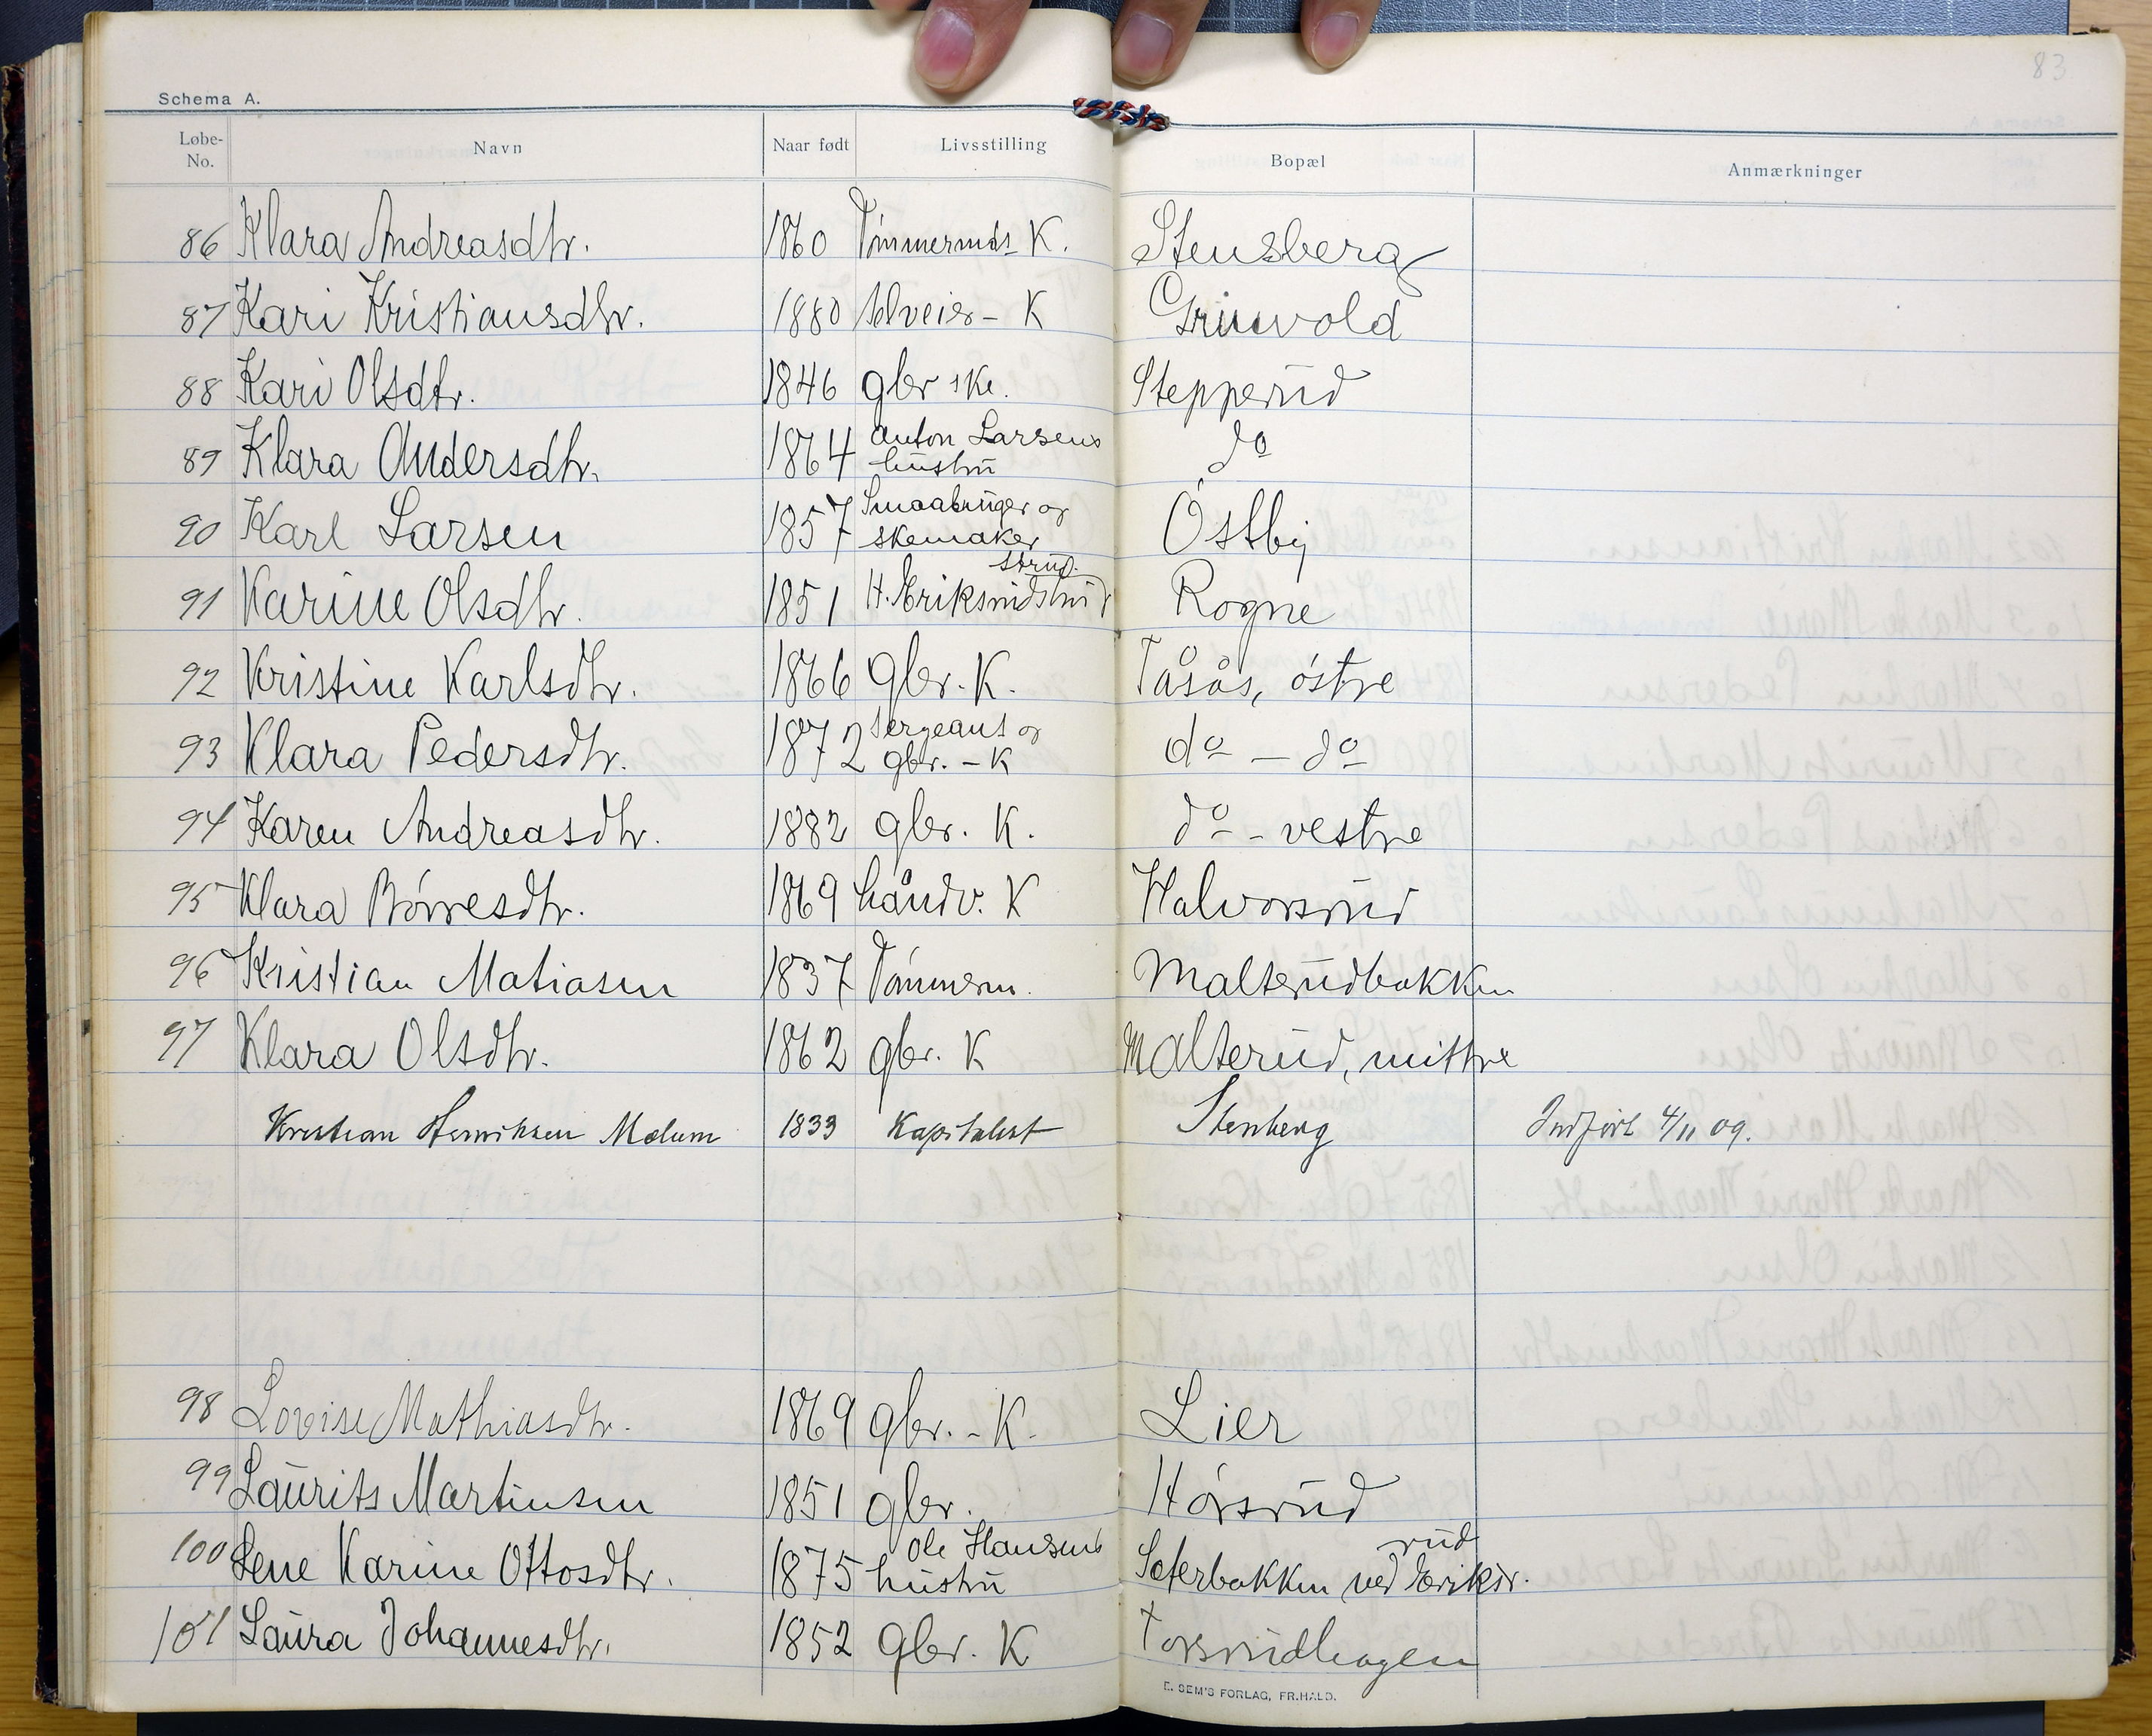 83
Schema A.
Løbe-No. Navn Naar født Livsstilling Bopæl Anmærkninger
86 Klara Andreasdtr. 1860 Tømmermds K. Stensberg
87 Kari Kristiansdtr. 1880 Selveier - K Grinvold
88 Kari Olsdtr. 1846 gbr ske. Stepperud
89 Klara Andersdtr. 1864 Anton Larsens hustru do
90 Karl Larsen 1857 Smaabruger og skomaker Østby
91 Karine Olsdtr. 1851 H. Eriksruds hustru Rogne
92 Kristine Karlsdtr. 1866 Gbr. K. Tåsås, østre
93 Klara Pedersdtr. 1872 Sergeant og gbr. - K do - do
94 Karen Andreasdtr. 1882 gbr. K. do - vestre
95 Klara Børresdtr. 1869 håndv. K Halvorsrud
96 Kristian Matiasen 1837 Tømmerm. Malterudbakken
97 Klara Olsdtr. 1862 gbr. K Malterud, mittre
Kristian Henriksen Mælum 1833 Kapitalist Stenberg Indført 4/11 09.
98 Lovise Mathiasdtr. 1869 gbr. - K. Lier
99 Laurits Martinsen 1851 gbr. Hørsrud
100 Lene Karine Ottosdtr. 1875 Ole Hansens hustru Seterbakken ved Eriksrud
101 Laura Johannesdtr. 1852 gbr. K Torsrudhagen
E. SEM'S FORLAG, FR.HALD.